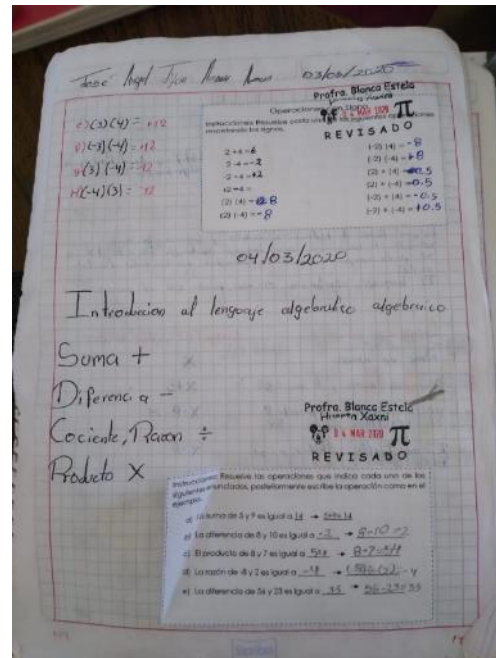 José Angel 03/03/2020
e) (3)(4) = +12
f) (-3)(-4) = +12
g) (3)(-4) = -12
h) (-4)(3) = -12
Profra. Blanca Estela
Huerta Xaxni
04 MAR 2020 π
REVISADO
Instrucciones: Resuelve cada
respetando los signos.
2+4=6
(2) (4) = 8
(2) (-4) = -8
(-2) (4) = -8
(-2) (-4) = +8
(2) ÷ (-4) = -0.5
(-2) ÷ (4) = -0.5
(-2) ÷ (-4) = +0.5
04/03/2020
Introducion al lenguaje algebraico
Suma +
Diferencia -
Cociente, Razon ÷
Producto X
Profra. Blanca Estela
Huerta Xaxni
04 MAR 2020 π
REVISADO
Instrucciones: Resuelve las operaciones que indica cada uno de los
siguientes enunciados, posteriormente escribe la operación como en el
ejemplo.
a) La suma de 5 y 9 es igual a 14 → 5+9=14
b) La diferencia de 8 y 10 es igual a -2 → 8-10=-2
c) El producto de 8 y 7 es igual a
d) La razón de -8 y 2 es igual a -4
e) La diferencia de 56 y 23 es igual a